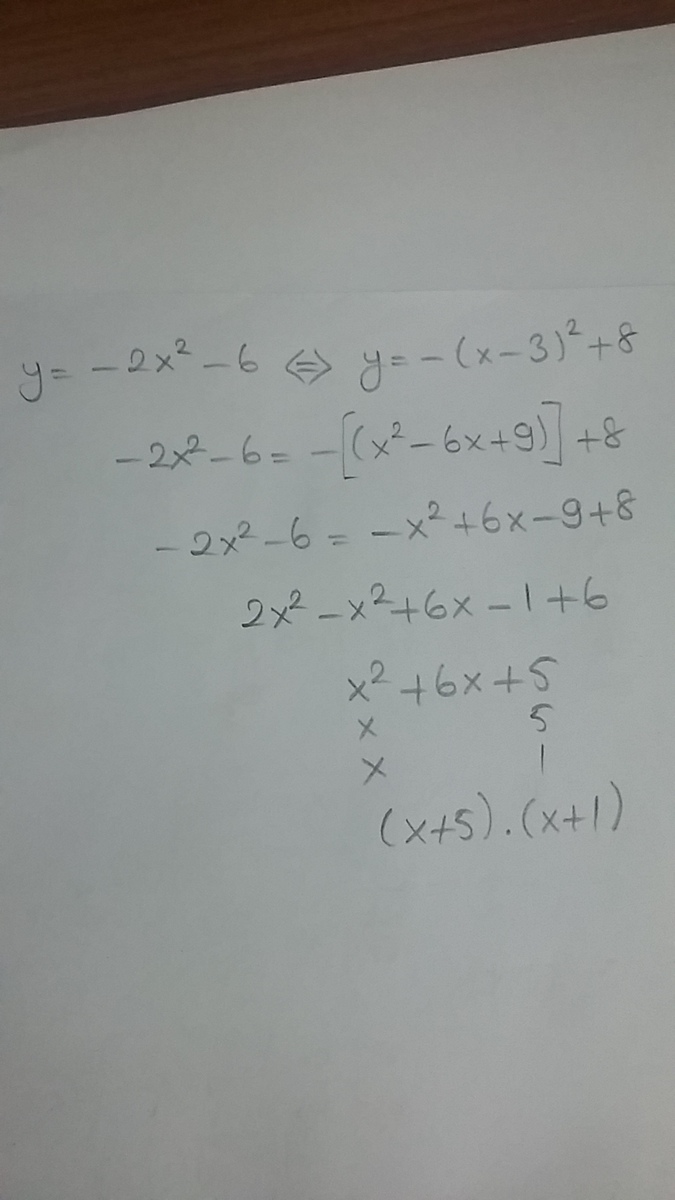 y = -2x² - 6 ⇔ y = -(x - 3)² + 8
-2x² - 6 = -[(x² - 6x + 9)] + 8
-2x² - 6 = -x² + 6x - 9 + 8
2x² - x² + 6x - 1 + 6
x² + 6x + 5
x 5
x 1
(x+5).(x+1)